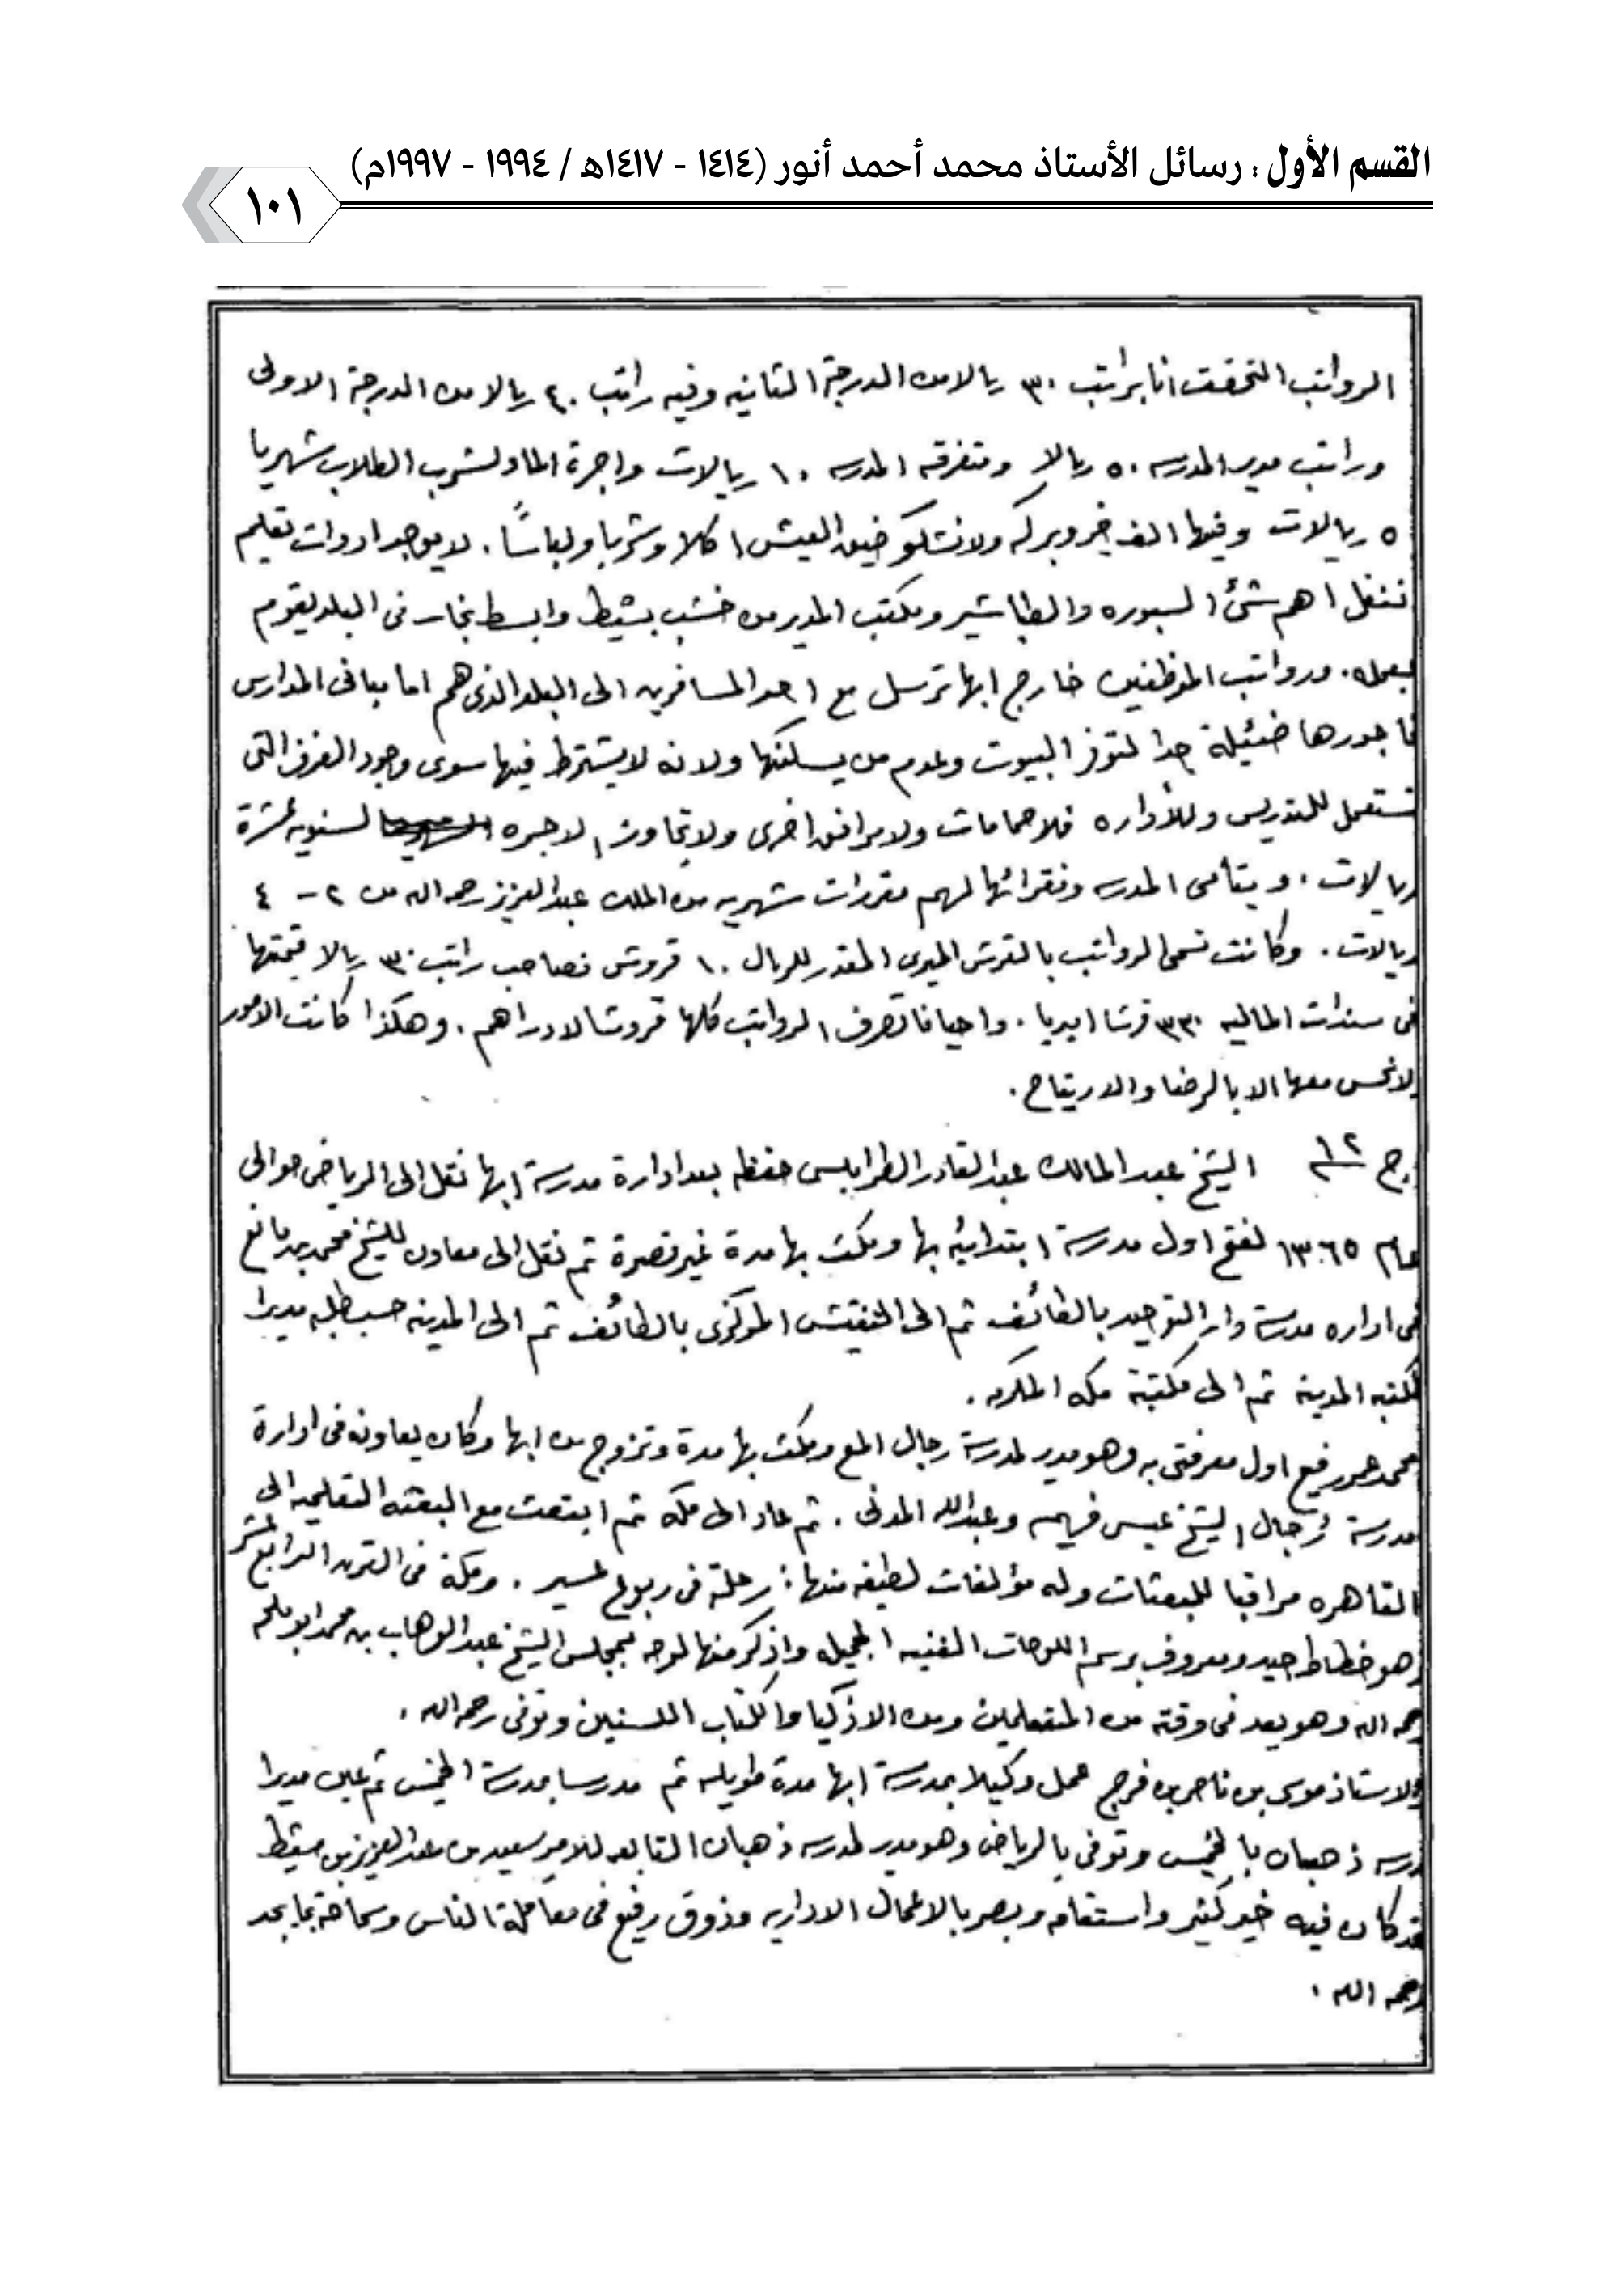 القسم الأول : رسائل الأستاذ محمد أحمد أنور (١٤١٤ - ١٤١٧هـ / ١٩٩٤ - ١٩٩٧م)
١٠١
الرواتب التحقت انا براتب ٣٠ ريالا من الدرجة الثانيه وفيه راتب ٤٠ ريالا من الدرجة الاولى
وراتب مدير المدرسه ٥٠ ريالا ومتفرقه المدرسه ١٠ ريالات واجرة الماء لشرب الطلاب شهريا
٥ ريالات وفيها الف خير وبركه ولا نشكو ضيق العيش اكلا وشربا ولباسًا. لا يوجد ادوات تعليم
اهم شئ السبوره والطباشير ومكتب المدير من خشب بسيط وابسط نجار فى البلد يقوم
بعمله. ورواتب الموظفين خارج ابها ترسل مع احد المسافرين الى البلد الذى هم اما مبانى المدارس
فاجورها ضئيلة جدا لتوفر البيوت وعدم من يسكنها ولانه لا يشترط فيها سوى وجود الغرف التى
تستعمل للتدريس وللأداره فلا حمامات ولا مرافق اخرى ولا تجاوز الاجره السنويه عشرة
ريالات. ويتامى المدرسه وفقرائها لهم مقررات شهريه من الملك عبدالعزيز رحمه الله من ٢ – ٤
ريالات. وكانت تسمى الرواتب بالقرش الميرى المقدر للريال ١٠ قروش فصاحب راتب ٣٠ ريالا قيمتها
فى سندات الماليه ٣٣٠ قرشا اميريا. واحيانا تصرف الرواتب كلها قروشا لا دراهم. وهكذا كانت الامور
ولا نحس معها الا بالرضا والارتياح.
ج ١٢ الشيخ عبد المالك عبدالقادر الطرابلسى حفظه بعد ادارة مدرسة ابها نقل الى الرياض حوالى
عام ١٣٦٥ لفتح اول مدرسة ابتدائيه بها ومكث بها مدة غير قصيرة ثم نقل الى معاون للشيخ محمد بن مانع
فى اداره مدرسة دار التوحيد بالطائف ثم الى التفتيش المركزى بالطائف ثم الى المدينه حسب طلبه مديرا
لمكتبه المدينه ثم الى مكتبة مكه المكرمه.
محمد عمر رفيع اول معرفتى به وهو مدير لمدرسة رجال المع ومكث بها مدة وتزوج من ابها وكان يعاونه فى ادارة
مدرسة رجال الشيخ عيسى فهيم وعبدالله المدنى. ثم عاد الى مكه ثم ابتعث مع البعثه التعليميه الى
القاهره مراقبا للبعثات وله مؤلفات لطيفه منها: رحلة فى ربوع عسير. ومكة فى القرن الرابع عشر
وهو خطاط جيد ومعروف برسم اللوحات الفنيه الجميله واذكر منها لوحه بمجلس الشيخ عبدالوهاب بن محمد ابو ملحه
رحمه الله وهو يعد فى وقته من المتعلمين ومن الاذكيا والكتاب اللسنين وتوفى رحمه الله.
والاستاذ موسى بن ناصر بن فرج عمل وكيلا بمدرسة ابها مدة طويله ثم مدرسا بمدرسة الخميس ثم عين مديرا
لمدرسه ذهبان بالخميس وتوفى بالرياض وهو مدير لمدرسه ذهبان التابعه للامير سعيد بن عبدالعزيز بن مشيط
قد كان فيه خير كثير واستقامه وبصر بالاعمال الاداريه وذوق رفيع فى معاملة الناس وسماحة
رحمه الله.